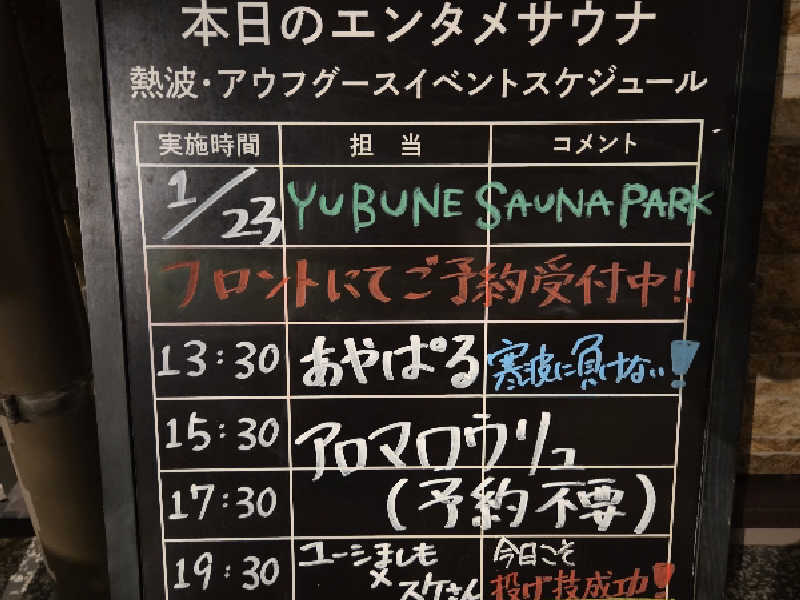 本日のエンタメサウナ
熱波・アウフグースイベントスケジュール
実施時間 担当 コメント
1/23 YUBUNE SAUNA PARK
フロントにてご予約受付中!!
13:30 あやぱる 寒波に負けない!
15:30 アロマロウリュ
17:30 (予約不要)
19:30 ユーシましも×スケさん 今日こそ投げ技成功!